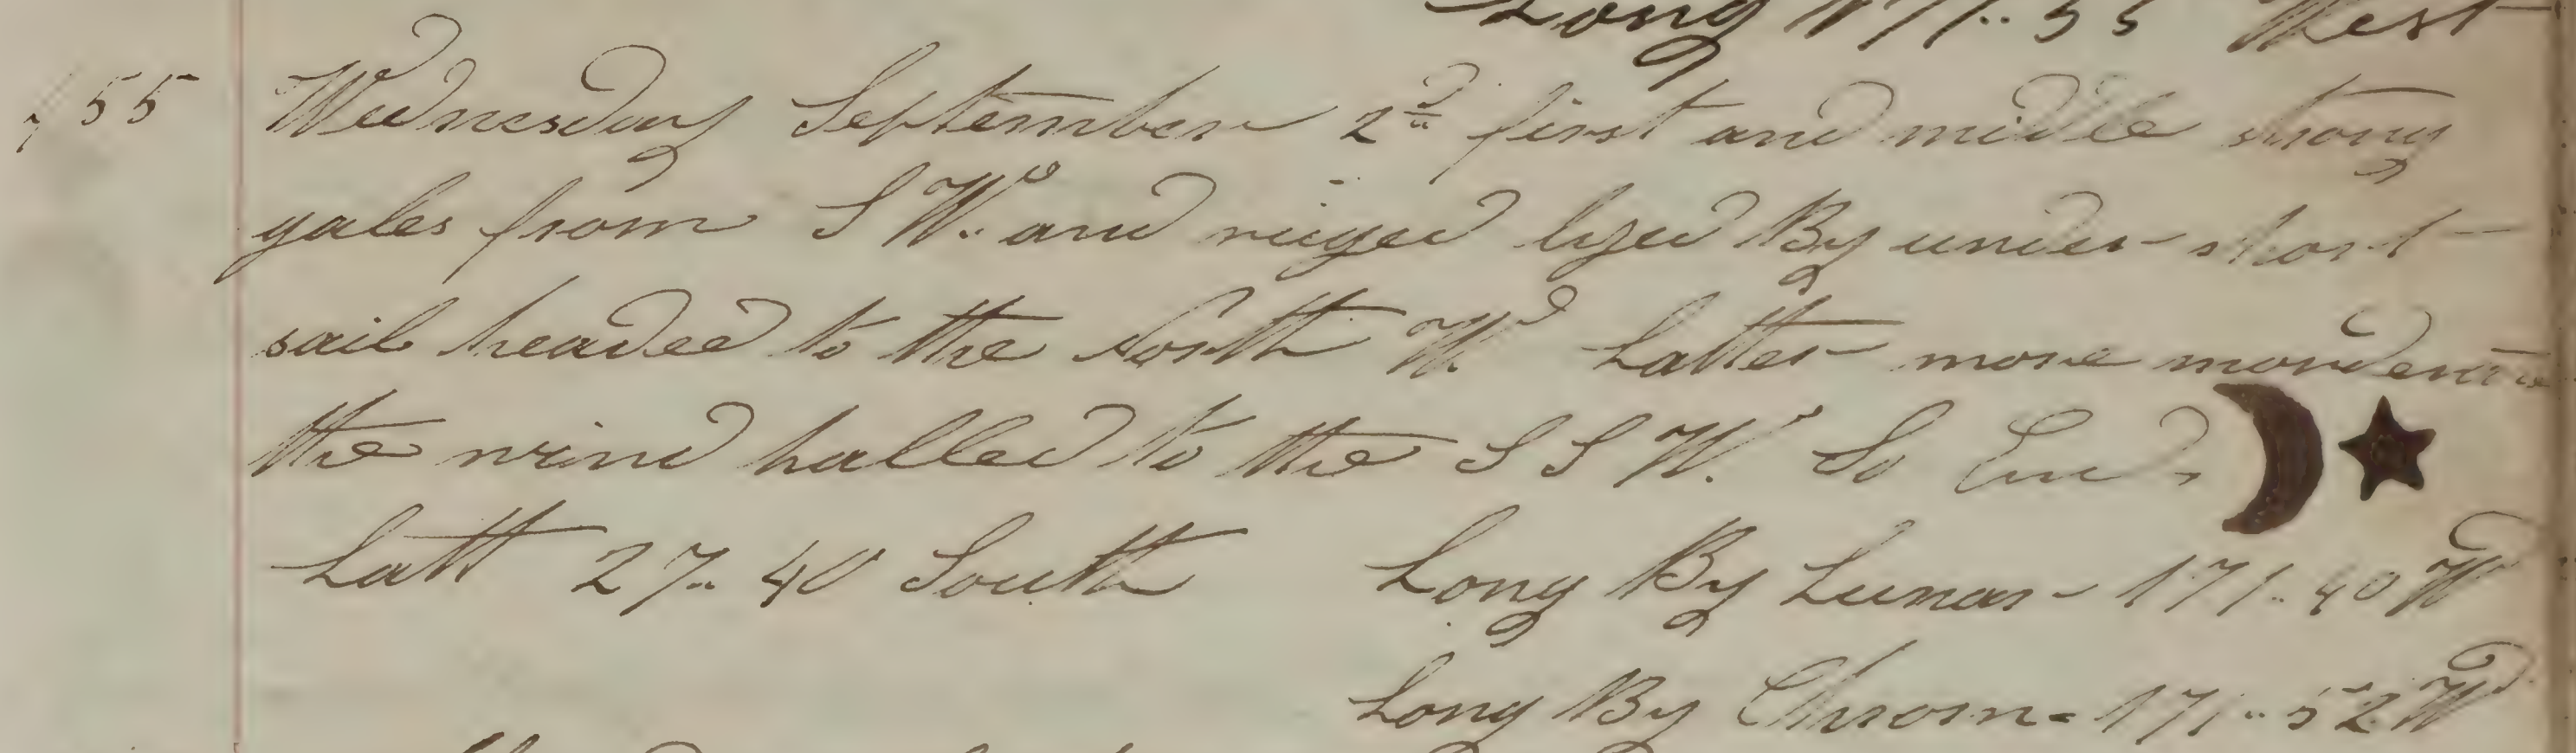 Long 171.. 55 West
55 Wednesday September 2d first and midle strong
gales from S W. and ruged layed By under short
sail headed to the North W. Latter more morderate
the wind halled to the S S W. So End
Latt 27.. 40 South Long By Lunar 171.. 40 W
Long By Chrom- 171.. 52 W